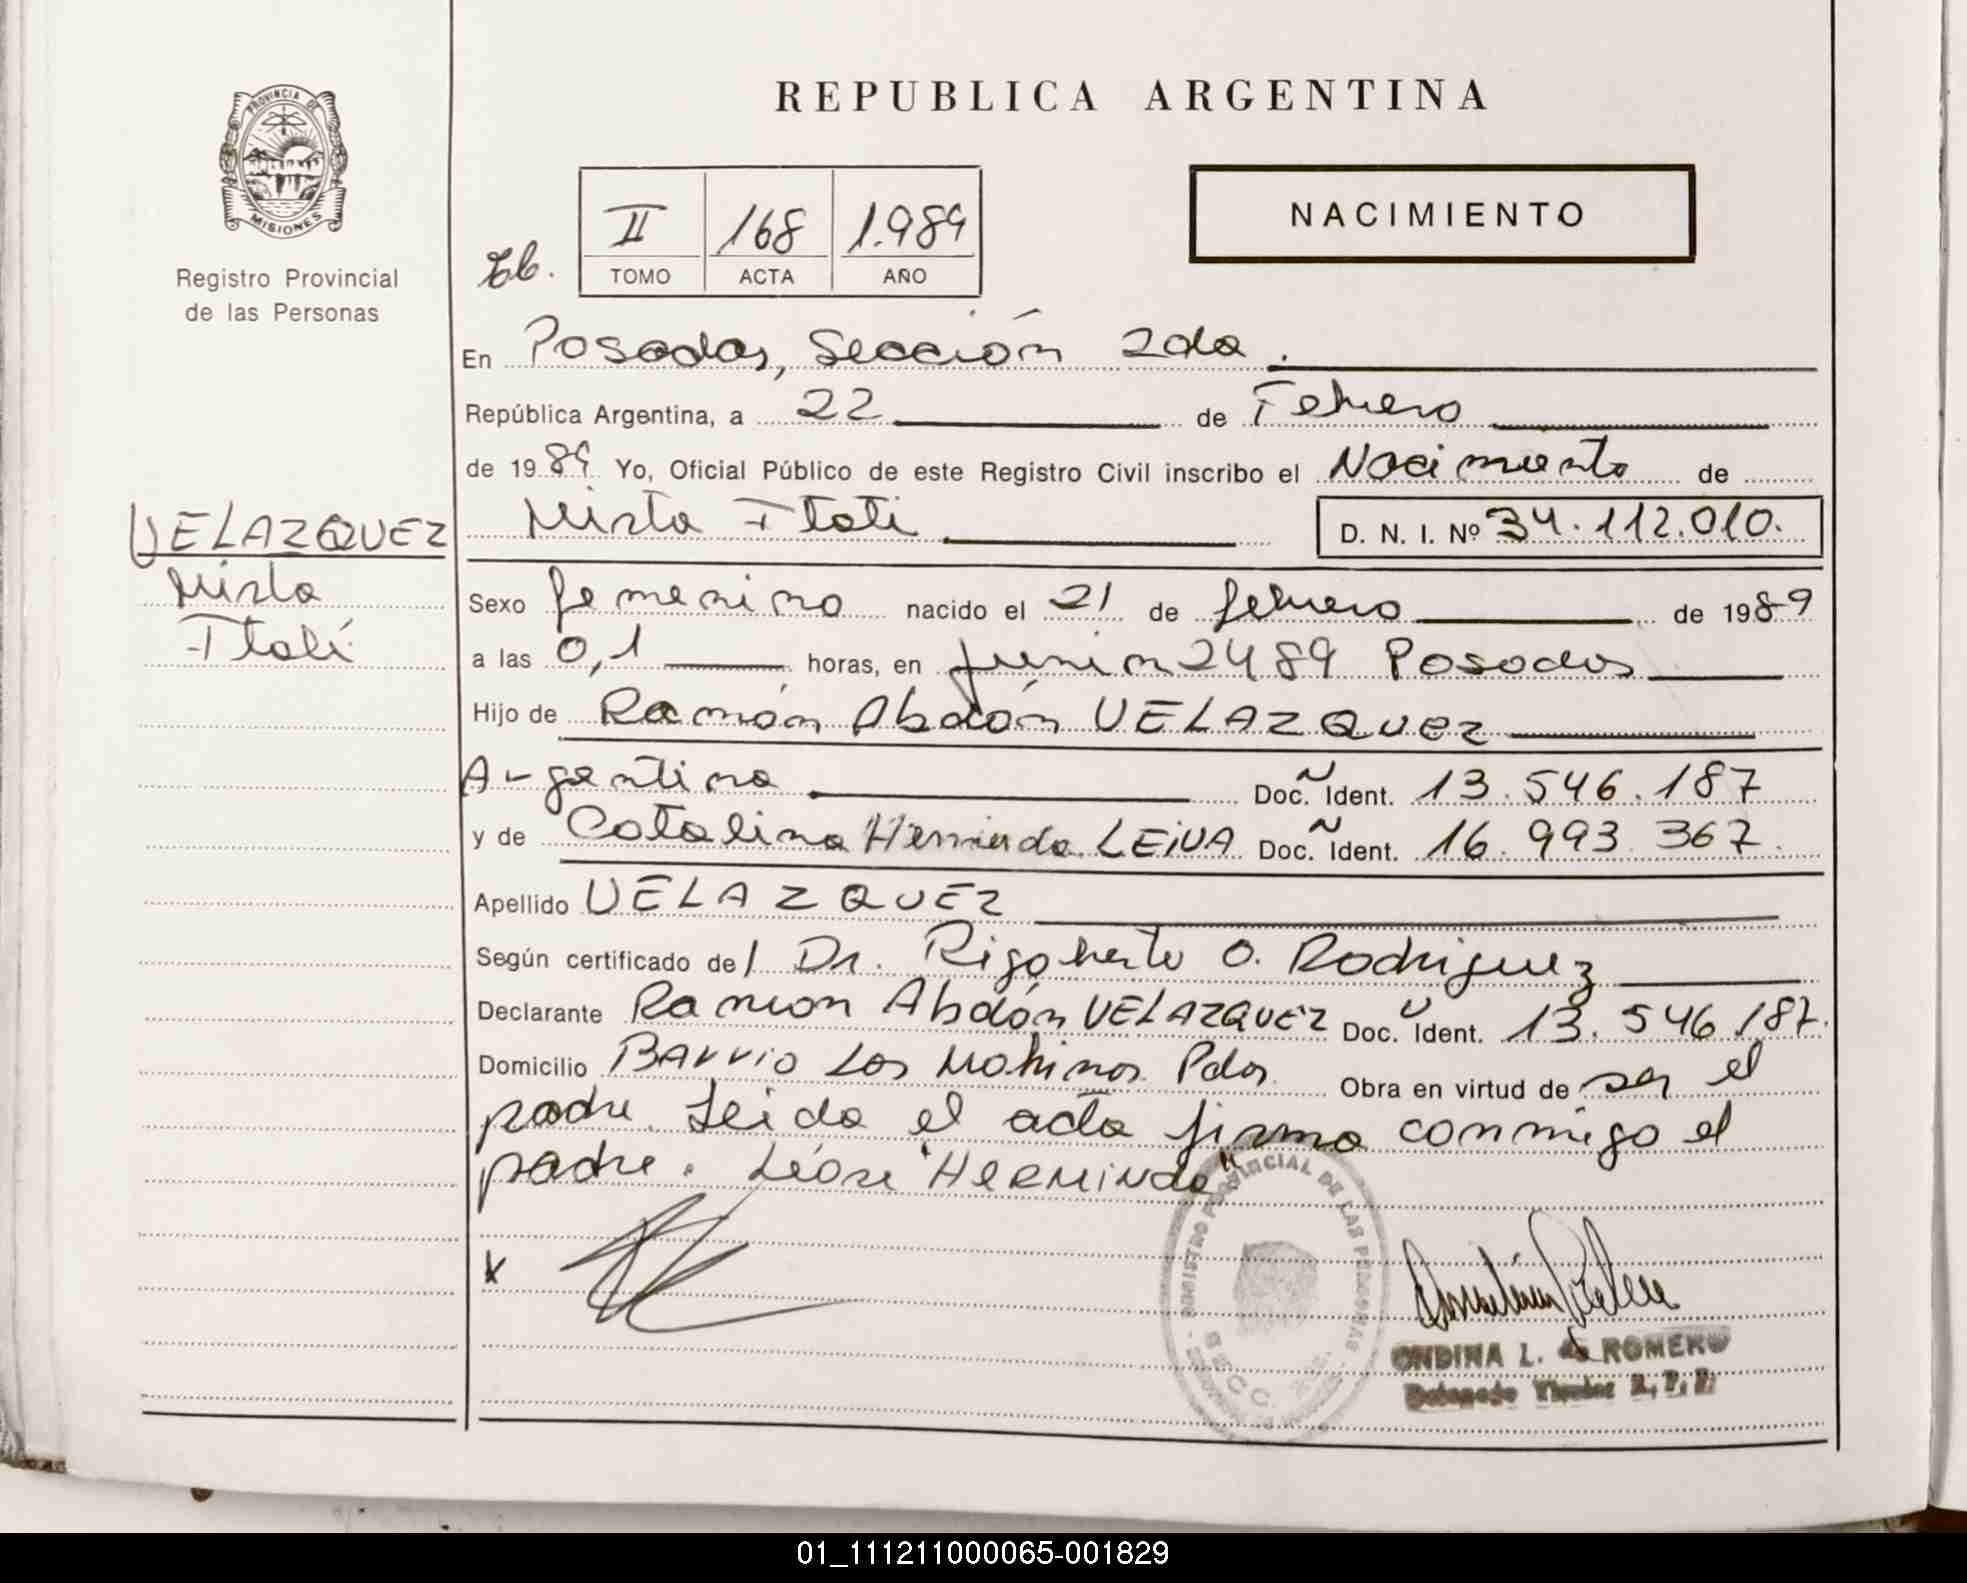 REPUBLICA ARGENTINA
PROVINCIA DE
MISIONES
Registro Provincial
de las Personas
NACIMIENTO
II 168 1.989
TOMO ACTA AÑO
En Posadas, Sección 2da.
República Argentina, a 22 de Febrero
de 1989 Yo, Oficial Público de este Registro Civil inscribo el Nacimiento de
Mirta Itati D. N. I. Nº 34.112.010.
VELAZQUEZ
Mirta
Itatí
Sexo femenino nacido el 21 de febrero de 1989
a las 0,1 horas, en Junin 2489 Posadas
Hijo de Ramón Abdón VELAZQUEZ
Argentina Doc. Ident. 13.546.187
y de Catalina Herminda LEIVA Doc. Ident. 16.993.367.
Apellido VELAZQUEZ
Según certificado del Dr. Rigoberto O. Rodriguez
Declarante Ramon Abdón VELAZQUEZ Doc. Ident. 13.546.187.
Domicilio Barrio Los Pdas. Obra en virtud de ser el
padre. Leida el acta firma conmigo el
padre. Léase "HERMINDA"
x
REGISTRO PROVINCIAL DE LAS PERSONAS
SECC.
ONDINA L. de ROMERO
Delegado Titular R.P.P.
01_111211000065-001829